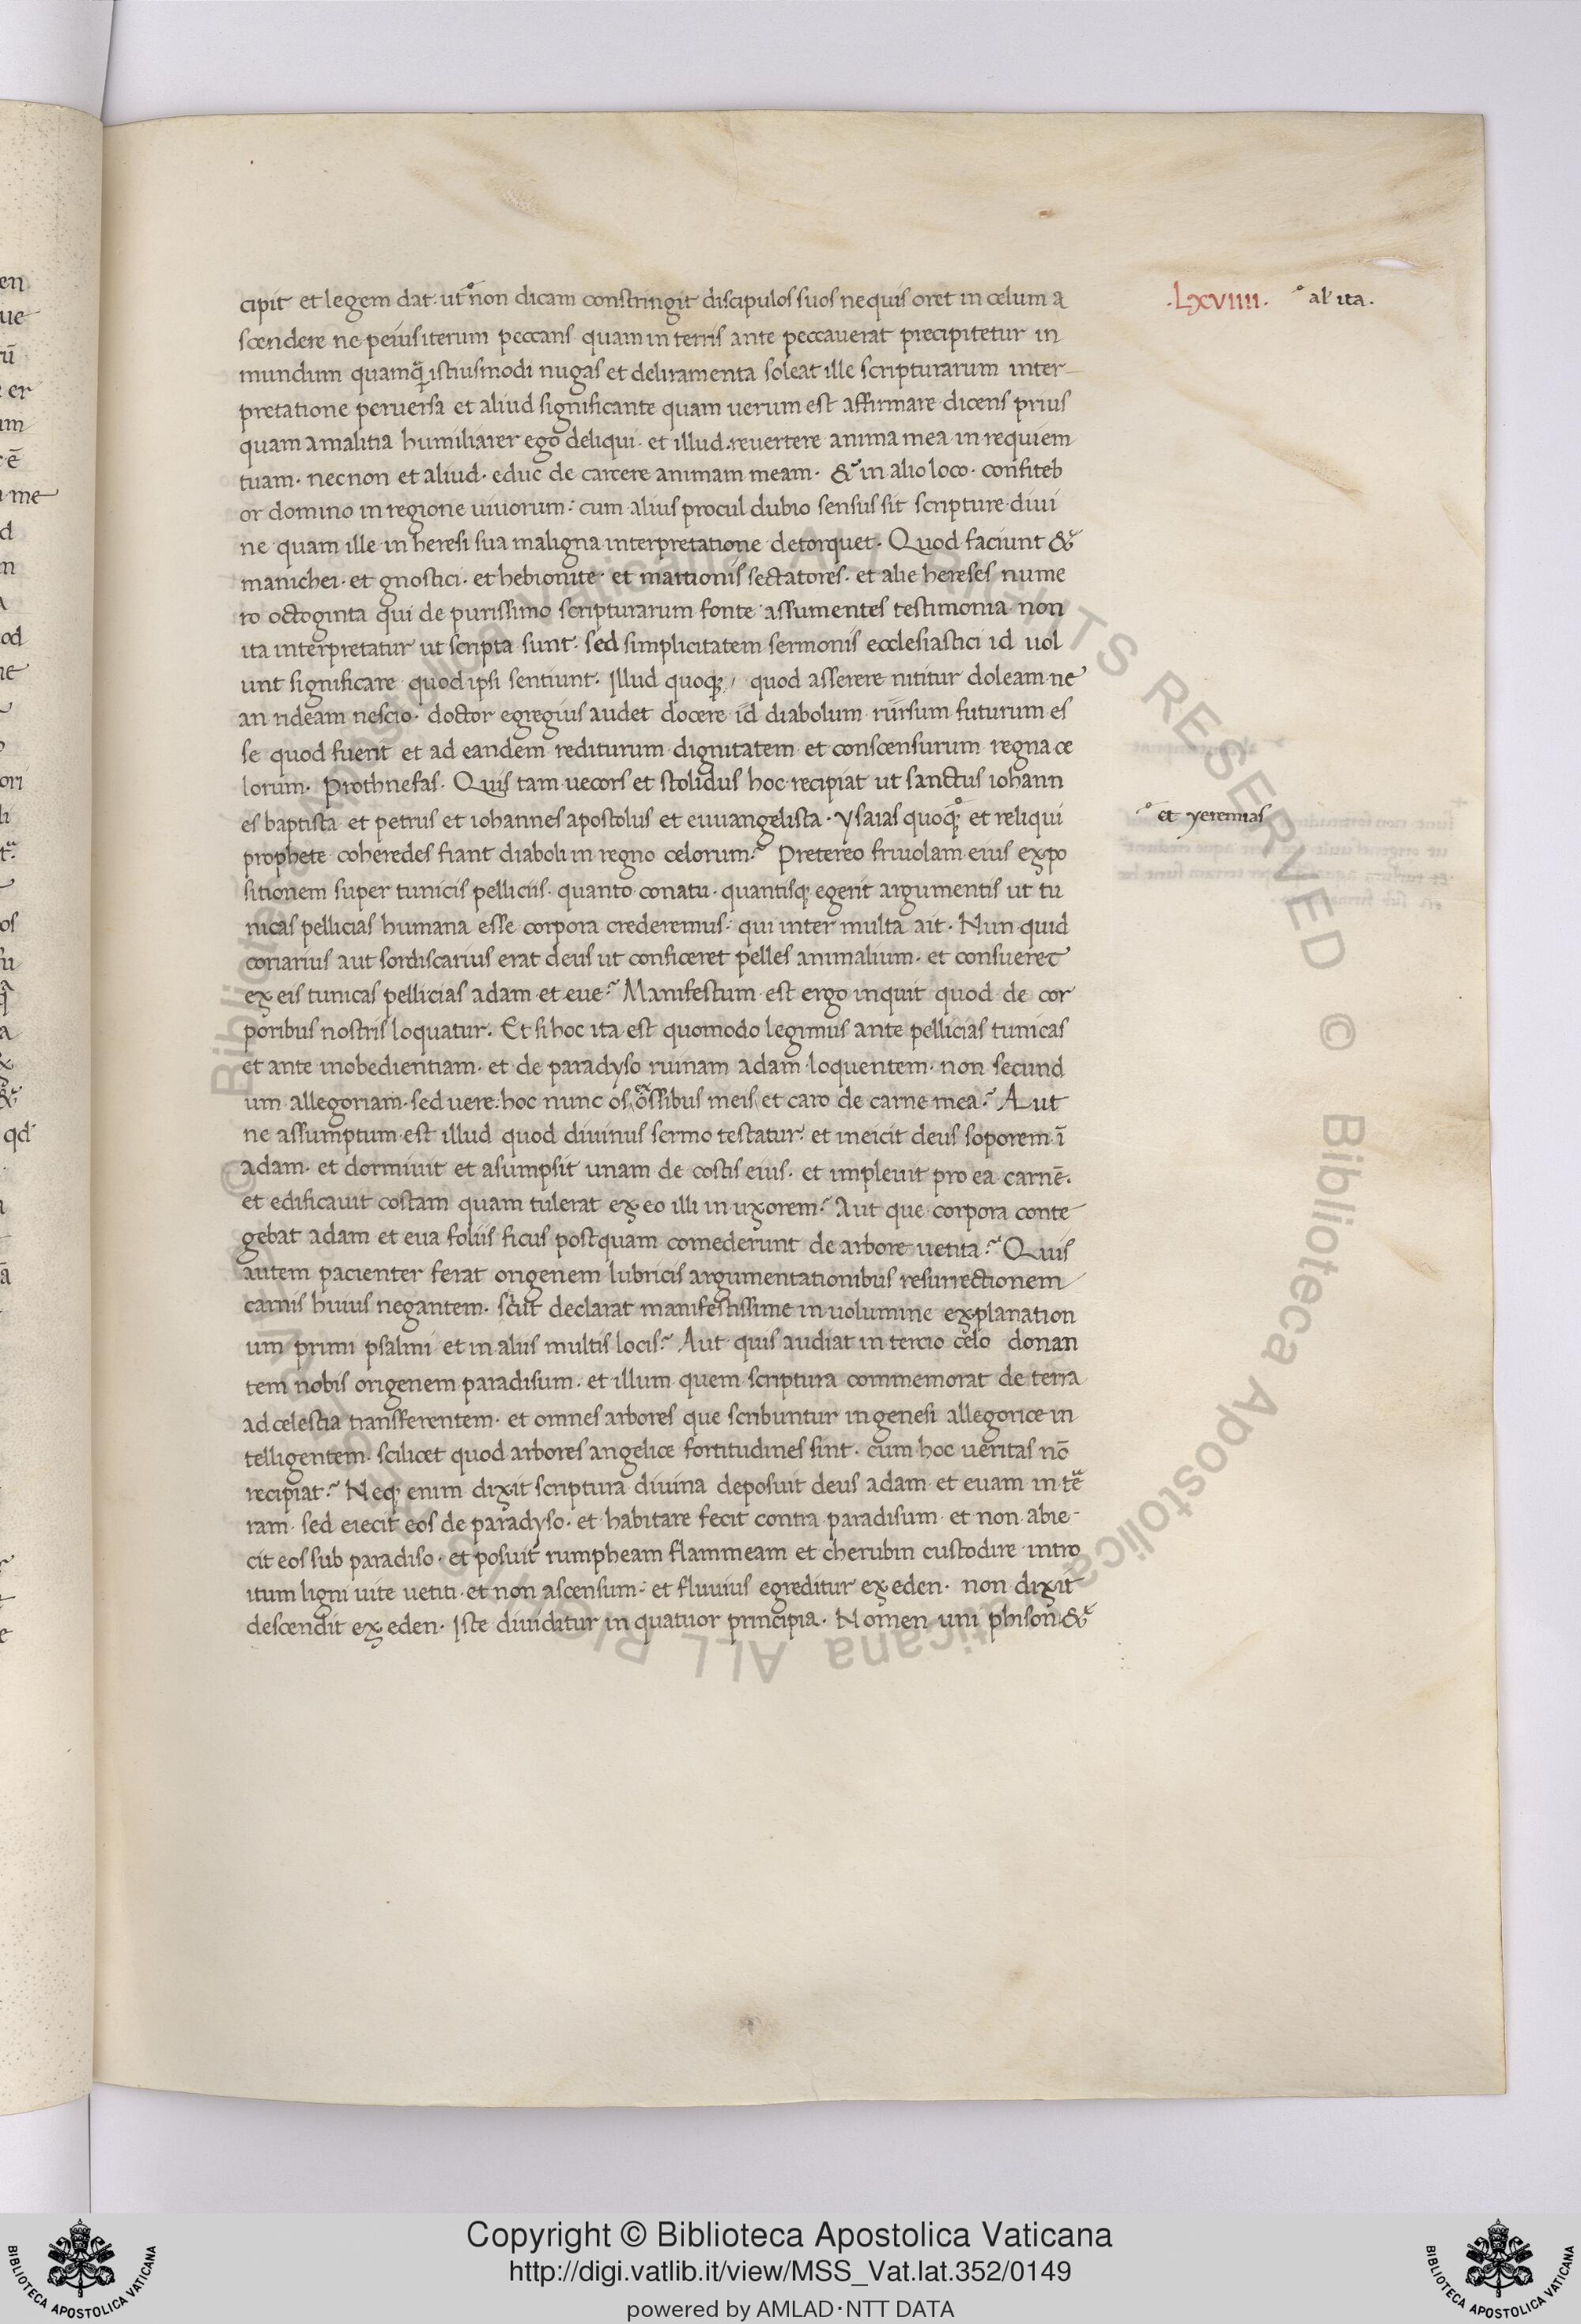 cipit et legem dat. ut° non dicam constringit discipulos suos nequis oret in celum a
scendere ne peius iterum peccans quam in terris ante peccauerat precipitetur in
mundum quamꝗ̃ istiusmodi nugas et deliramenta soleat ille scripturarum inter-
pretatione peruersa et aliud significante quam uerum est affirmare dicens prius
quam a malitia humiliarer ego deliqui. et illud. reuertere anima mea in requiem
tuam. necnon et aliud. educ de carcere animam meam. & in alio loco. confiteb
or domino in regione uiuorum: cum alius procul dubio sensus sit scripture diui
ne quam ille in heresi sua maligna interpretatione detorquet. Quod faciunt &
manichei. et gnostici. et hebionite. et martionis sectatores. et alie hereses nume
ro octoginta qui de purissimo scripturarum fonte assumentes testimonia non
ita interpretatur ut scripta sunt. sed simplicitatem sermonis ecclesiastici id uol
unt significare quod ipsi sentiunt. Illud quoqꝫ quod asserere nititur doleam ne
an rideam nescio. doctor egregius audet docere id diabolum rursum futurum es
se quod fuerit et ad eandem rediturum dignitatem et conscensurum regna ce
lorum. Prothnefas. Quis tam uecors et stolidus hoc recipiat ut sanctus iohann
es baptista et petrus et iohannes apostolus et euuangelista. ysaias quoqꝫ° et reliqui
prophete coheredes fiant diaboli in regno celorum? Pretereo friuolam eius expo
sitionem super tunicis pelliciis. quanto conatu. quantisqꝫ egerit argumentis ut tu
nicas pellicias humana esse corpora crederemus: qui inter multa ait. Nun quid
coriarius aut sordiscarius erat deus ut conficeret pelles animalium. et consueret
ex eis tunicas pellicias adam et eue? Manifestum est ergo inquit quod de cor
poribus nostris loquatur. Et si hoc ita est quomodo legimus ante pellicias tunicas
et ante inobedientiam. et de paradyso ruinam adam loquentem. non secund
um allegoriam. sed uere: hoc nunc os ex ossibus meis et caro de carne mea? Aut
ne assumptum est illud quod diuinus sermo testatur. et ineicit deus soporem ī
adam. et dormiuit et asumpsit unam de costis eius. et impleuit pro ea carnē.
et edificauit costam quam tulerat ex eo illi in uxorem? Aut que corpora conte
gebat adam et eua foliis ficus postquam comederunt de arbore uetita? Quis
autem pacienter ferat origenem lubricis argumentationibus resurrectionem
carnis huius negantem. sicut declarat manifestissime in uolumine explanation
um primi psalmi et in aliis multis locis? Aut quis audiat in tercio celo donan
tem nobis origenem paradisum. et illum quem scriptura commemorat de terra
ad celestia transferentem. et omnes arbores que scribuntur in genesi allegorice in
telligentem. scilicet quod arbores angelice fortitudines sint. cum hoc ueritas nō
recipiat? Neqꝫ enim dixit scriptura diuina deposuit deus adam et euam in te
ram. sed eiecit eos de paradyso. et habitare fecit contra paradisum et non abie-
cit eos sub paradiso. et posuit rumpheam flammeam et cherubin custodire intro
itum ligni uite uetiti et non ascensum: et fluuius egreditur ex eden. non dixit
descendit ex eden. Iste diuiditur in quatuor principia. Nomen uni phison &
.Lxviiii.
° al' ita.
° et yeremias
Copyright © Biblioteca Apostolica Vaticana
http://digi.vatlib.it/view/MSS_Vat.lat.352/0149
powered by AMLAD·NTT DATA
BIBLIOTECA APOSTOLICA VATICANA
BIBLIOTECA APOSTOLICA VATICANA